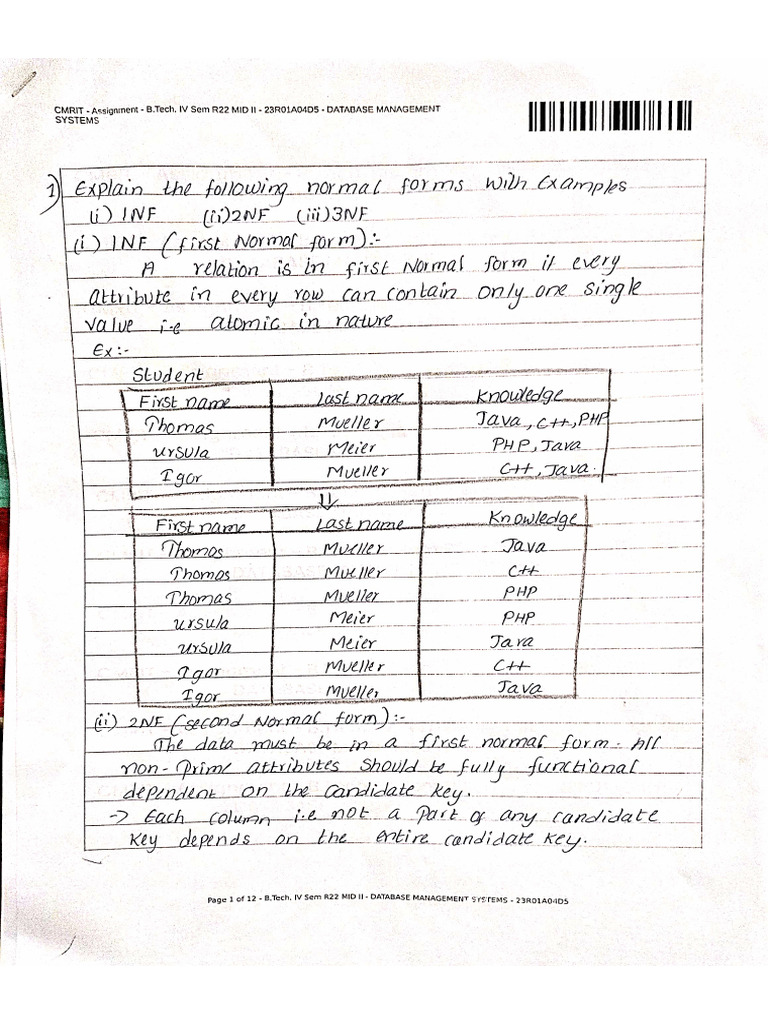 CMRIT - Assignment - B.Tech. IV Sem R22 MID II - 23R01A04D5 - DATABASE MANAGEMENT
SYSTEMS
1) Explain the following normal forms with Examples
(i) 1NF (ii) 2NF (iii) 3NF
(i) 1NF (first Normal form):-
A relation is in first Normal form if every
attribute in every row can contain only one single
value i.e atomic in nature
Ex:-
Student
First name Last name Knowledge
Thomas Mueller Java, C++, PHP
Ursula Meier PHP, Java
Igor Mueller C++, Java.
⇓
First name Last name Knowledge
Thomas Mueller Java
Thomas Mueller C++
Thomas Mueller PHP
Ursula Meier PHP
Ursula Meier Java
Igor Mueller C++
Igor Mueller Java
(ii) 2NF (second Normal form):-
The data must be in a first normal form. All
non-Prime attributes should be fully functional
dependent on the candidate key.
-> Each column i.e not a part of any candidate
key depends on the entire candidate key.
Page 1 of 12 - B.Tech. IV Sem R22 MID II - DATABASE MANAGEMENT SYSTEMS - 23R01A04D5